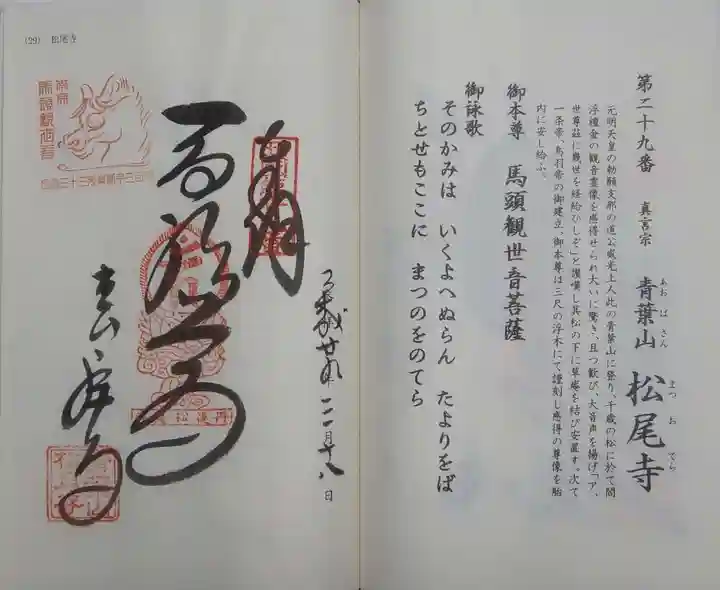 第二十九番 真言宗 青葉山 松尾寺
あおばさん まつおでら
元明天皇の勅願支那の道公威光上人此の青葉山に登り、千歳の松に於て閻
浮檀金の観音霊像を感得せられ大いに驚き、且つ歓び、大音声を揚げ「ア、
世尊茲に幾世を経給ひしぞ」と讃嘆し其松の下に草庵を結び安置す。次て
一条帝、鳥羽帝の御建立、御本尊は三尺の浮木にて謹刻し感得の尊像を胎
内に安し給ふ。
御本尊 馬頭観世音菩薩
御詠歌
そのかみは いくよへぬらん たよりをば
ちとせもここに まつのをのてら
(29) 松尾寺
奉拝
平成廿九年三月十八日
松尾寺